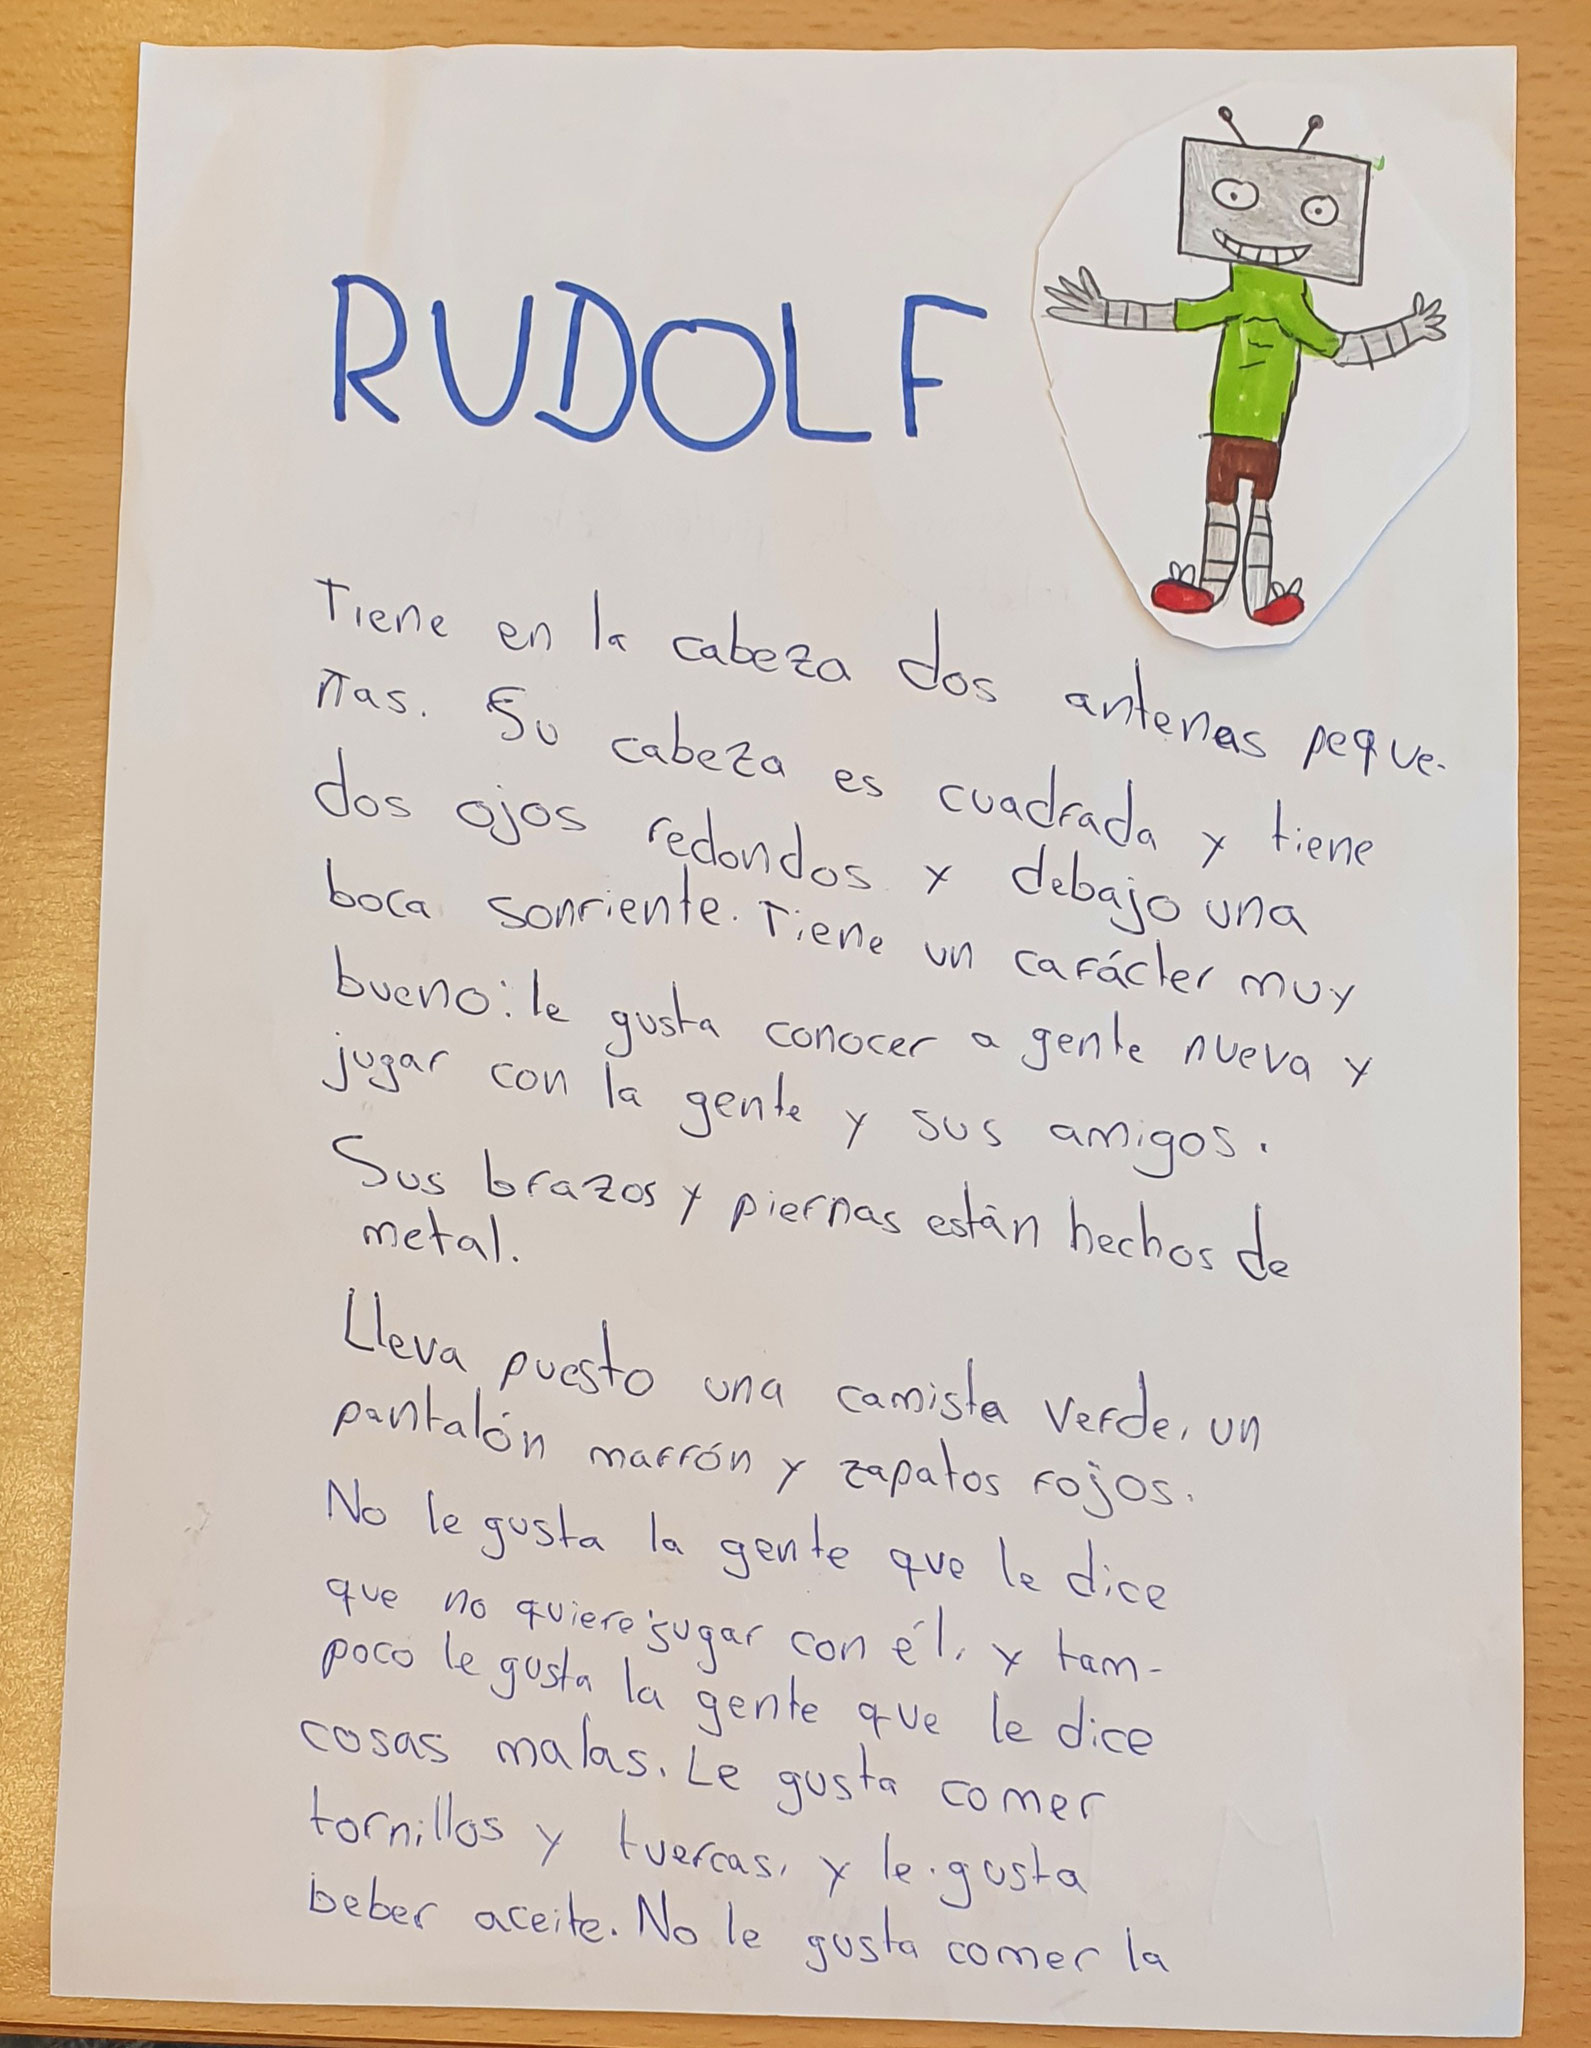 RUDOLF
Tiene en la cabeza dos antenas peque-
ñas. Su cabeza es cuadrada y tiene
dos ojos redondos y debajo una
boca sonriente. Tiene un carácter muy
bueno: le gusta conocer a gente nueva y
jugar con la gente y sus amigos.
Sus brazos y piernas están hechos de
metal.
Lleva puesto una camista verde, un
pantalón marrón y zapatos rojos.
No le gusta la gente que le dice
que no quiere jugar con él, y tam-
poco le gusta la gente que le dice
cosas malas. Le gusta comer
tornillos y tuercas, y le gusta
beber aceite. No le gusta comer la